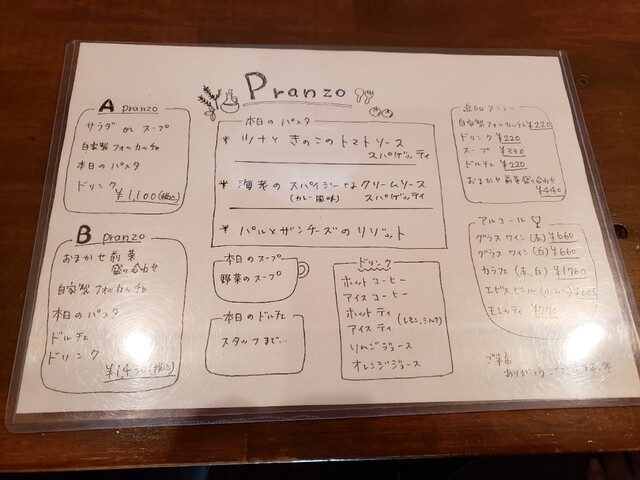 Pranzo
A pranzo
サラダ or スープ
自家製フォカッチャ
本日のパスタ
ドリンク
¥1,100(税込)
B pranzo
おまかせ前菜
盛り合わせ
自家製フォカッチャ
本日のパスタ
ドルチェ
ドリンク
(税込)
本日のパスタ
* ツナときのこのトマトソース
スパゲッティ
* 海老のスパイシーなクリームソース
(カレー風味) スパゲッティ
* パルミジャンチーズのリゾット
本日のスープ
野菜のスープ
本日のドルチェ
スタッフまで...
ドリンク
ホットコーヒー
アイスコーヒー
ホットティ
アイスティ (レモン,ミルク)
りんごジュース
オレンジジュース
追加メニュー
自家製フォカッチャ ¥220
ドリンク ¥220
スープ ¥330
ドルチェ ¥220
おまかせ前菜盛り合わせ
¥440
アルコール
グラスワイン(赤) ¥660
グラスワイン(白) ¥660
カラフェ(赤,白) ¥1760
エビスビール ¥605
モレッティ ¥770
ご来店
ありがとうございます